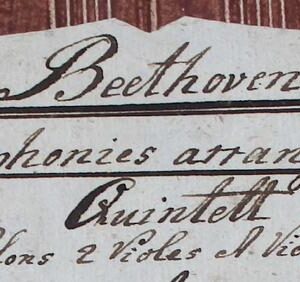 Beethoven
phonies arran
Quintett
lons 2 Violes et Vio